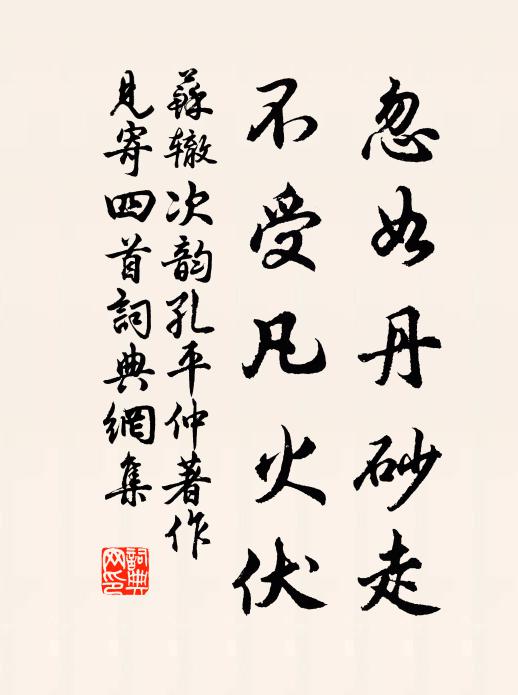 忽如丹砂走
不受凡火伏
蘇辙次韵孔平仲著作
見寄四首詞典網集
詞典
网印